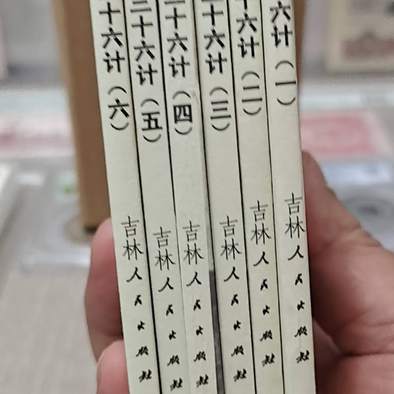 十六计（六）
吉林人民出版社
三十六计（五）
吉林人民出版社
十六计（四）
吉林人民出版社
十六计（三）
吉林人民出版社
十六计（二）
吉林人民出版社
六计（一）
吉林人民出版社